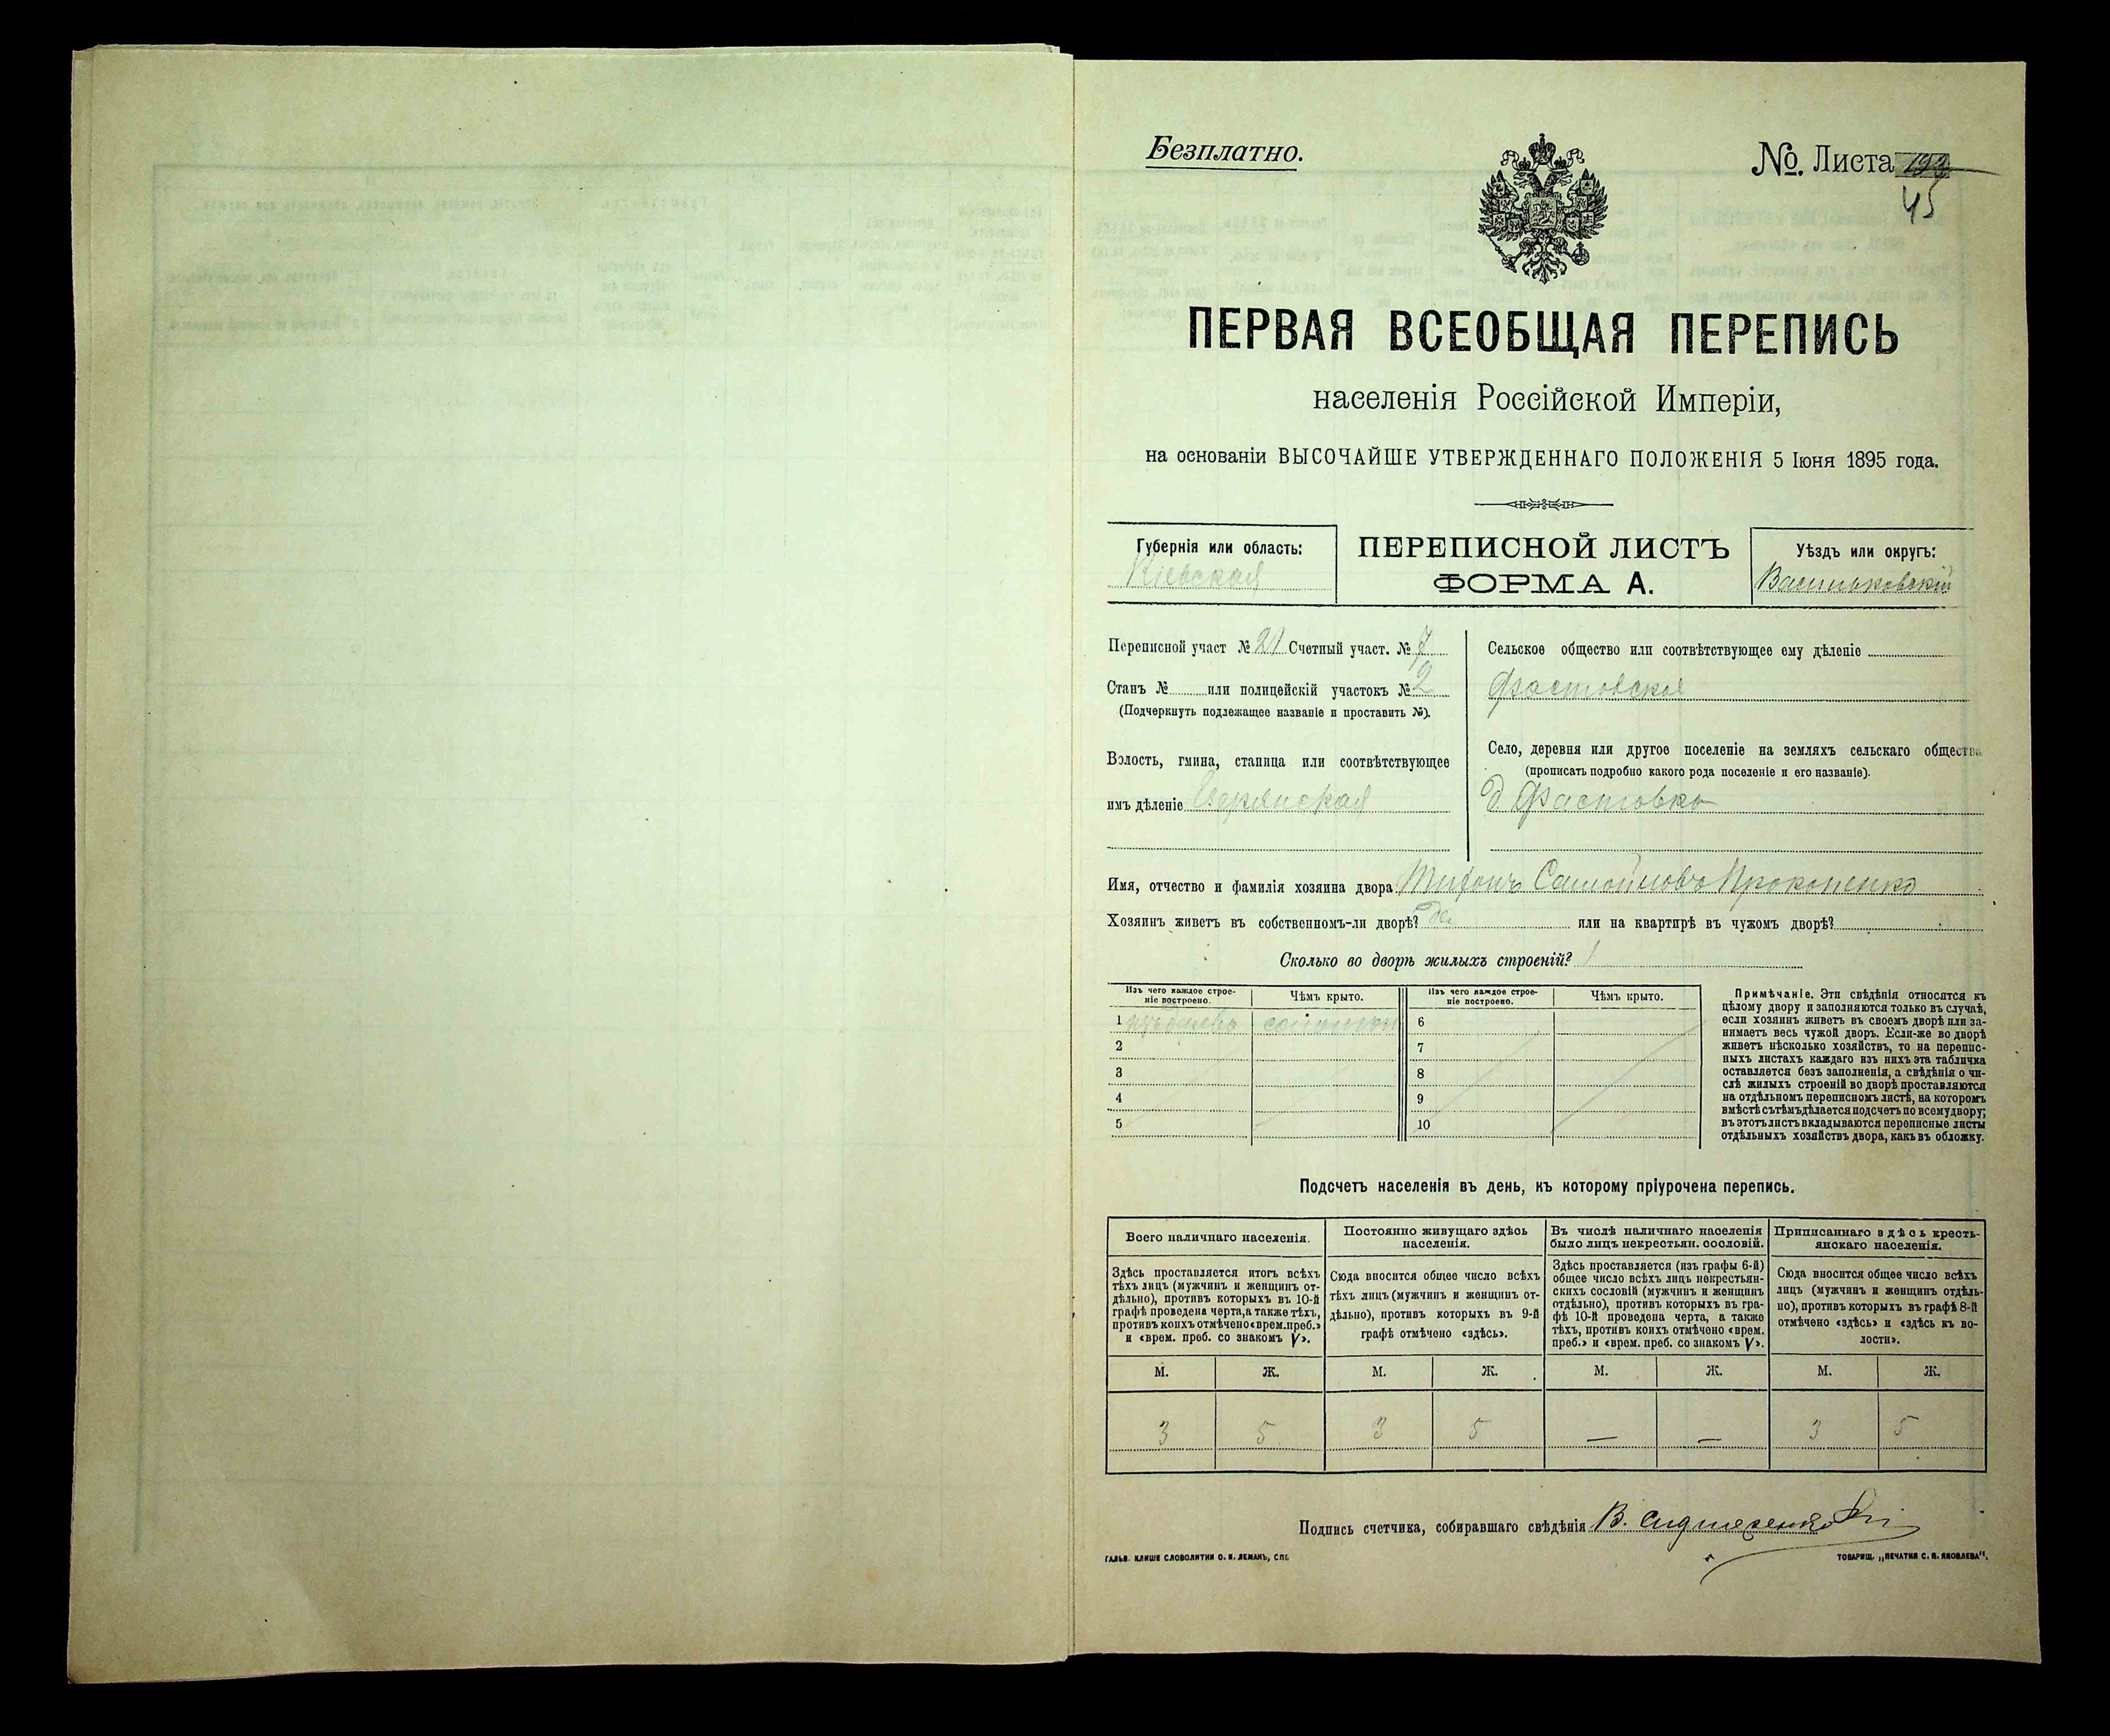 Безплатно.
№. Листа 45
ПЕРВАЯ ВСЕОБЩАЯ ПЕРЕПИСЬ
населенія Россійской Имперіи,
на основаніи ВЫСОЧАЙШЕ УТВЕРЖДЕННАГО ПОЛОЖЕНІЯ 5 Іюня 1895 года.
Губернія или область:
Кіевская
ПЕРЕПИСНОЙ ЛИСТЪ
ФОРМА А.
Уѣздъ или округъ:
Васильковскій
Переписной участ № 21 Счетный участ. № 7
Станъ № или полицейскій участокъ № 2
(Подчеркнуть подлежащее названіе и проставить №).
Волость, гмина, станица или соотвѣтствующее
имъ дѣленіе
Сельское общество или соотвѣтствующее ему дѣленіе
Фастовское
Село, деревня или другое поселеніе на земляхъ сельскаго общества
(прописать подробно какого рода поселеніе и его названіе).
д Фастовка
Имя, отчество и фамилія хозяина двора Самойловъ Прокопенко
Хозяинъ живетъ въ собственномъ-ли дворѣ? да или на квартирѣ въ чужомъ дворѣ?
Сколько во дворѣ жилыхъ строеній? 1
Изъ чего каждое строе-
ніе построено.
Чѣмъ крыто.
Изъ чего каждое строе-
ніе построено.
Чѣмъ крыто.
1 изъ дерева соломою 6
2 7
3 8
4 9
5 10
Примѣчаніе. Эти свѣдѣнія относятся къ
цѣлому двору и заполняются только въ случаѣ,
если хозяинъ живетъ въ своемъ дворѣ или за-
нимаетъ весь чужой дворъ. Если-же во дворѣ
живетъ нѣсколько хозяйствъ, то на перепис-
ныхъ листахъ каждаго изъ нихъ эта табличка
оставляется безъ заполненія, а свѣдѣнія о чи-
слѣ жилыхъ строеній во дворѣ проставляются
на отдѣльномъ переписномъ листѣ, на которомъ
вмѣстѣ съ тѣмъ дѣлается подсчетъ по всему двору;
въ этотъ листъ вкладываются переписные листы
отдѣльныхъ хозяйствъ двора, какъ въ обложку.
Подсчетъ населенія въ день, къ которому пріурочена перепись.
Всего наличнаго населенія.
Здѣсь проставляется итогъ всѣхъ
тѣхъ лицъ (мужчинъ и женщинъ от-
дѣльно), противъ которыхъ въ 10-й
графѣ проведена черта, а также тѣхъ,
противъ коихъ отмѣчено «врем. преб.»
и «врем. преб. со знакомъ V».
Постоянно живущаго здѣсь
населенія.
Сюда вносится общее число всѣхъ
тѣхъ лицъ (мужчинъ и женщинъ от-
дѣльно), противъ которыхъ въ 9-й
графѣ отмѣчено «здѣсь».
Въ числѣ наличнаго населенія
было лицъ некрестьян. сословій.
Здѣсь проставляется (изъ графы 6-й)
общее число всѣхъ лицъ некрестьян-
скихъ сословій (мужчинъ и женщинъ
отдѣльно), противъ которыхъ въ гра-
фѣ 10-й проведена черта, а также
тѣхъ, противъ коихъ отмѣчено «врем.
преб.» и «врем. преб. со знакомъ V».
Приписаннаго здѣсь кресть-
янскаго населенія.
Сюда вносится общее число всѣхъ
лицъ (мужчинъ и женщинъ отдѣль-
но), противъ которыхъ въ графѣ 8-й
отмѣчено «здѣсь» и «здѣсь къ во-
лости».
М. Ж. М. Ж. М. Ж. М. Ж.
3 5 3 5 — — 3 5
Подпись счетчика, собиравшаго свѣдѣнія В.
ГАЛЬВ. КЛИШЕ СЛОВОЛИТНИ О. И. ЛЕМАНЪ, СПБ
ТОВАРИЩ. „ПЕЧАТНЯ С. П. ЯКОВЛЕВА“.